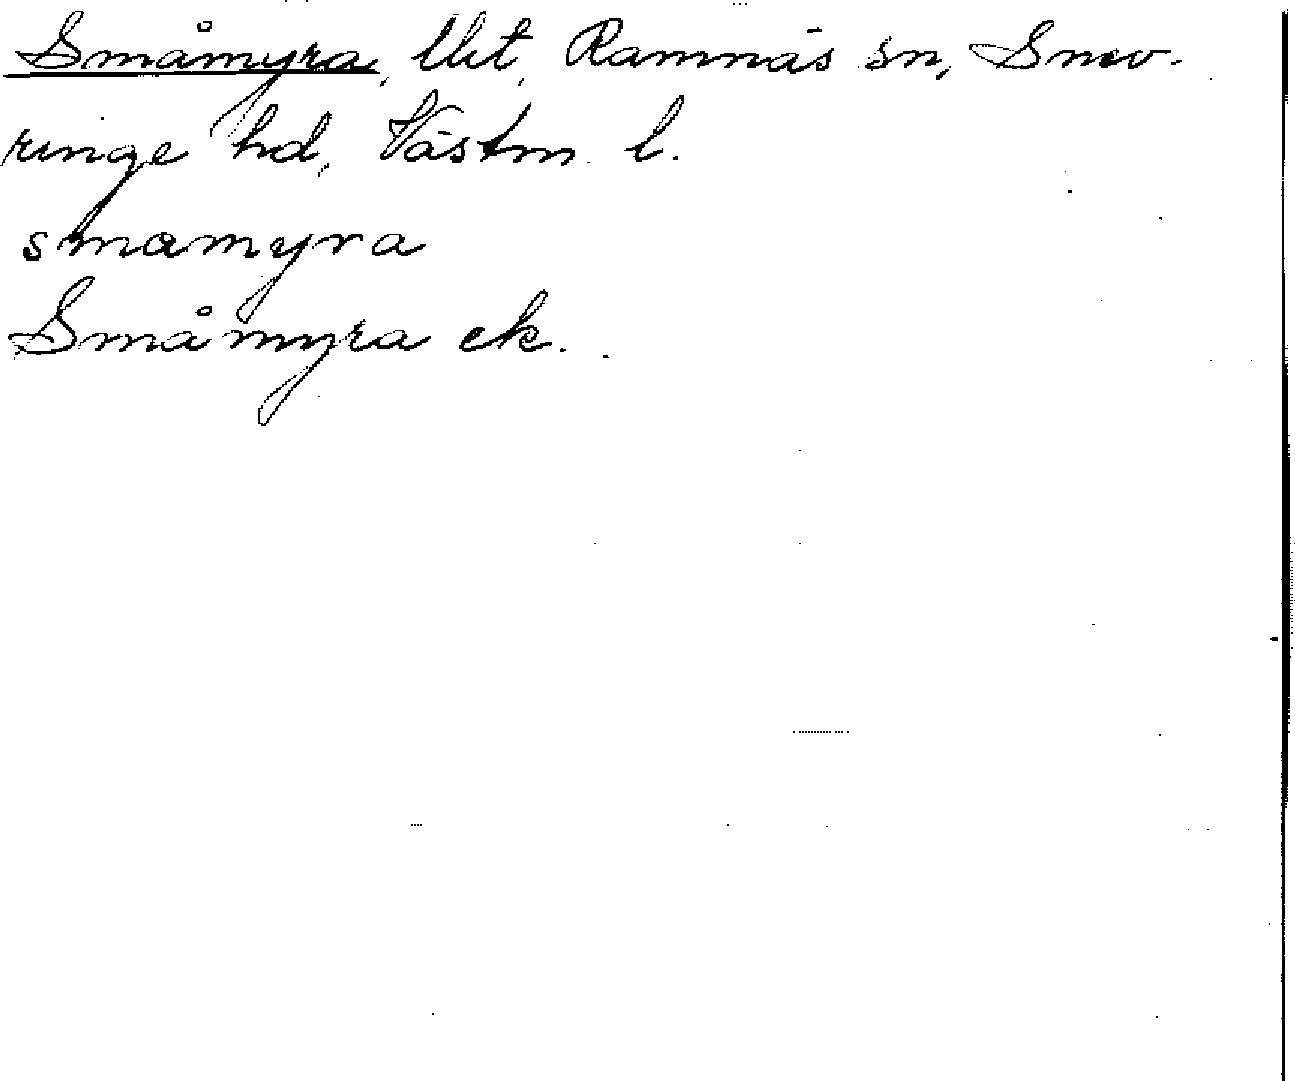 Småmyra, Utt, Ramnäs sn, Snev-
ringe hd, Västm. l.
smamyra
Småmyra ek.